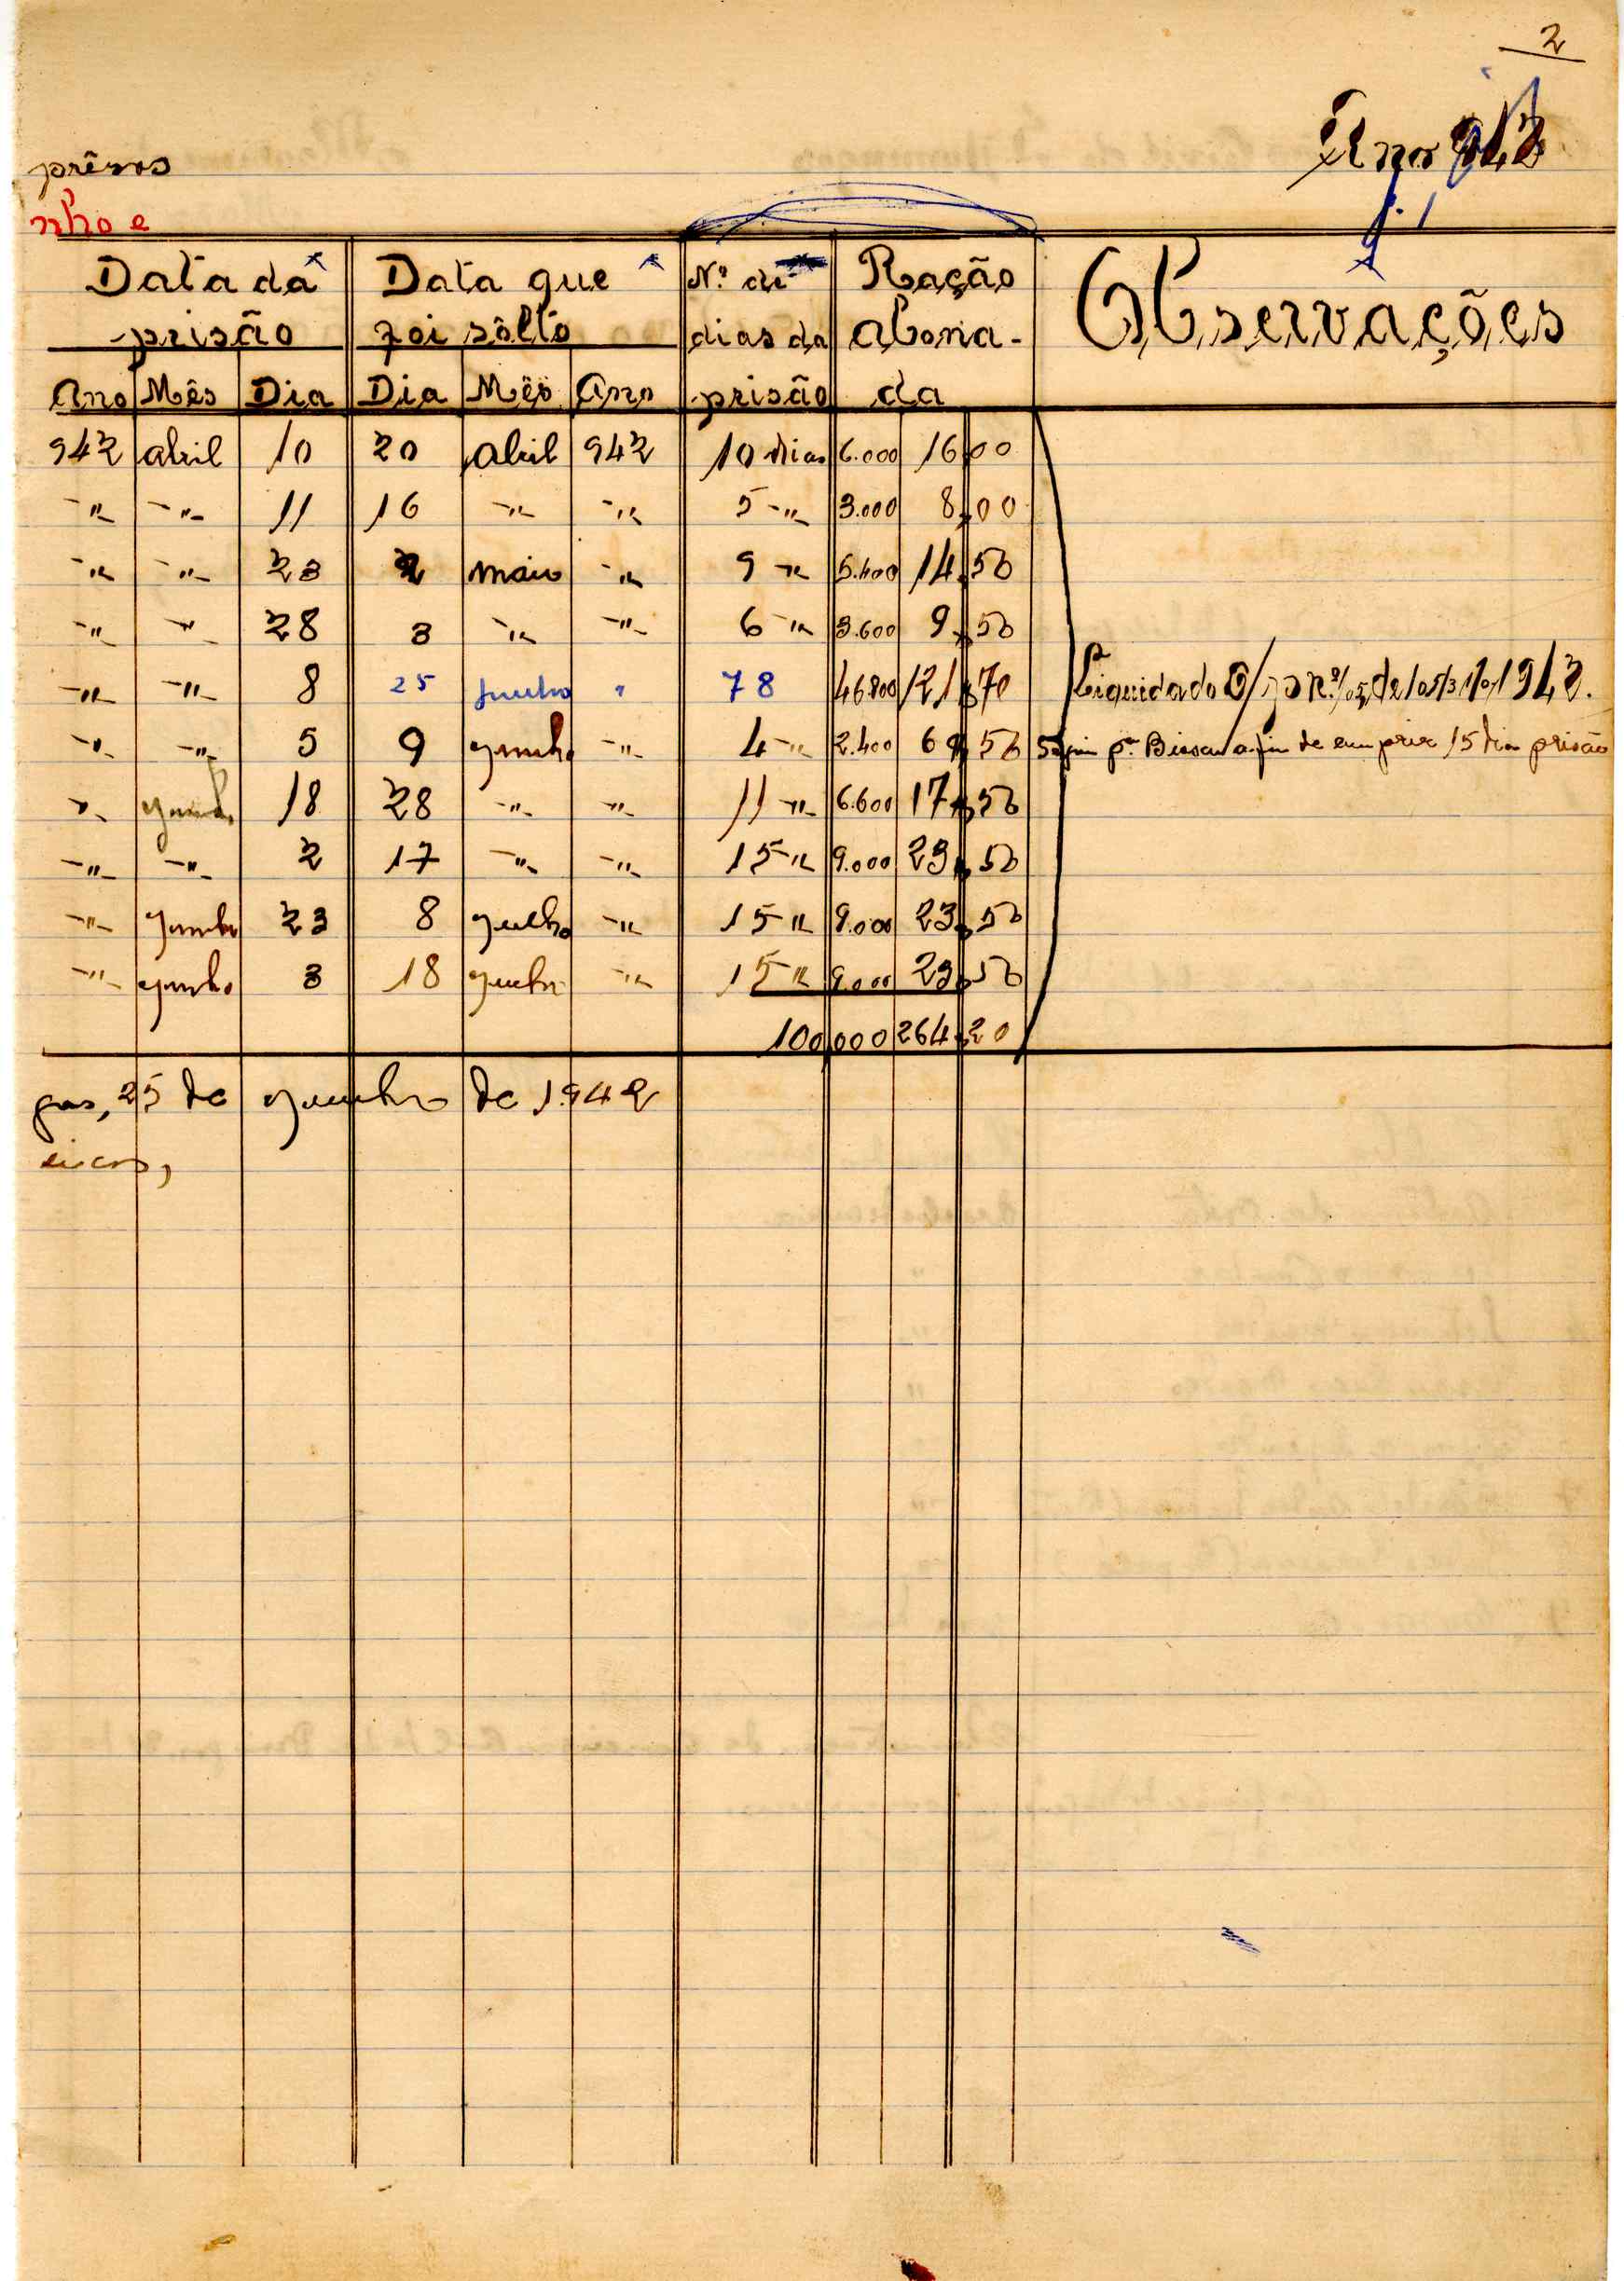 2
Ano 942
prêsos
nho e
Data da prisão | Data que foi sôlto | Nº de dias da prisão | Ração abonada | Observações
Ano | Mês | Dia | Dia | Mês | Ano
942 | abril | 10 | 20 | abril | 942 | 10 dias | 6.000 | 16 | 00
-"- | -"- | 11 | 16 | -"- | -"- | 5 -"- | 3.000 | 8 | 00
-"- | -"- | 23 | 2 | maio | -"- | 9 -"- | 5.400 | 14 | 50
-"- | -"- | 28 | 3 | -"- | -"- | 6 -"- | 3.600 | 9 | 50
-"- | -"- | 8 | 25 | Junho | " | 78 | 46.800 | 121 | 70 | Liquidado de 1942.
-"- | -"- | 5 | 9 | junho | -"- | 4 -"- | 2.400 | 6 | 50 | pª Bissau a fim de cumprir 15 dias prisão
-"- | junho | 18 | 28 | -"- | -"- | 11 -"- | 6.600 | 17 | 50
-"- | -"- | 2 | 17 | -"- | -"- | 15 -"- | 9.000 | 23 | 50
-"- | junho | 23 | 8 | julho | -"- | 15 -"- | 9.000 | 23 | 50
-"- | junho | 3 | 18 | junho | -"- | 15 -"- | 9.000 | 23 | 50
100.000 | 264 | 20
gos, 25 de junho de 1942